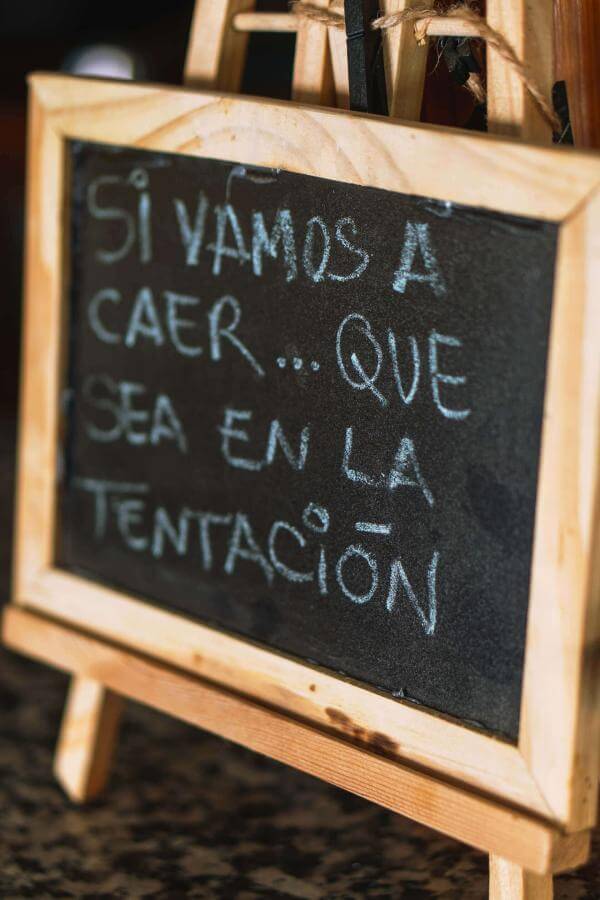 SI VAMOS A
CAER... QUE
SEA EN LA
TENTACIÓN